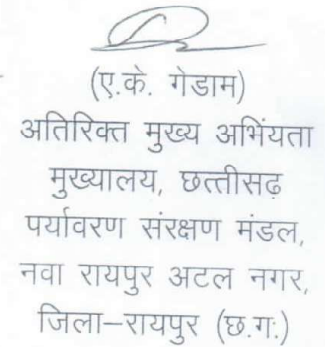 (ए.के. गेडाम)
अतिरिक्त मुख्य अभिंयता
मुख्यालय, छत्तीसढ़
पर्यावरण संरक्षण मंडल,
नवा रायपुर अटल नगर,
जिला–रायपुर (छ.ग:)